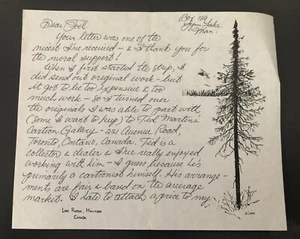 Dear Joel
Box 129
Lynn Lake
Man.
Your letter was one of the
nicest I've received - & I thank you for
the moral support!
When I first started the strip, I
did send out original work - but
it got to be too expensive & too
much work - so I turned over
the originals I was able to part with
(some I want to keep) to Ted Martin's
Cartoon Gallery - Avenue Road,
Toronto, Ontario, Canada. Ted is a
collector & dealer & I've really enjoyed
working with him - I guess because he's
primarily a cartoonist himself. His arrange-
ments are fair & based on the average
market. I hate to attach a price to my
Lynn Lake, Manitoba
Canada